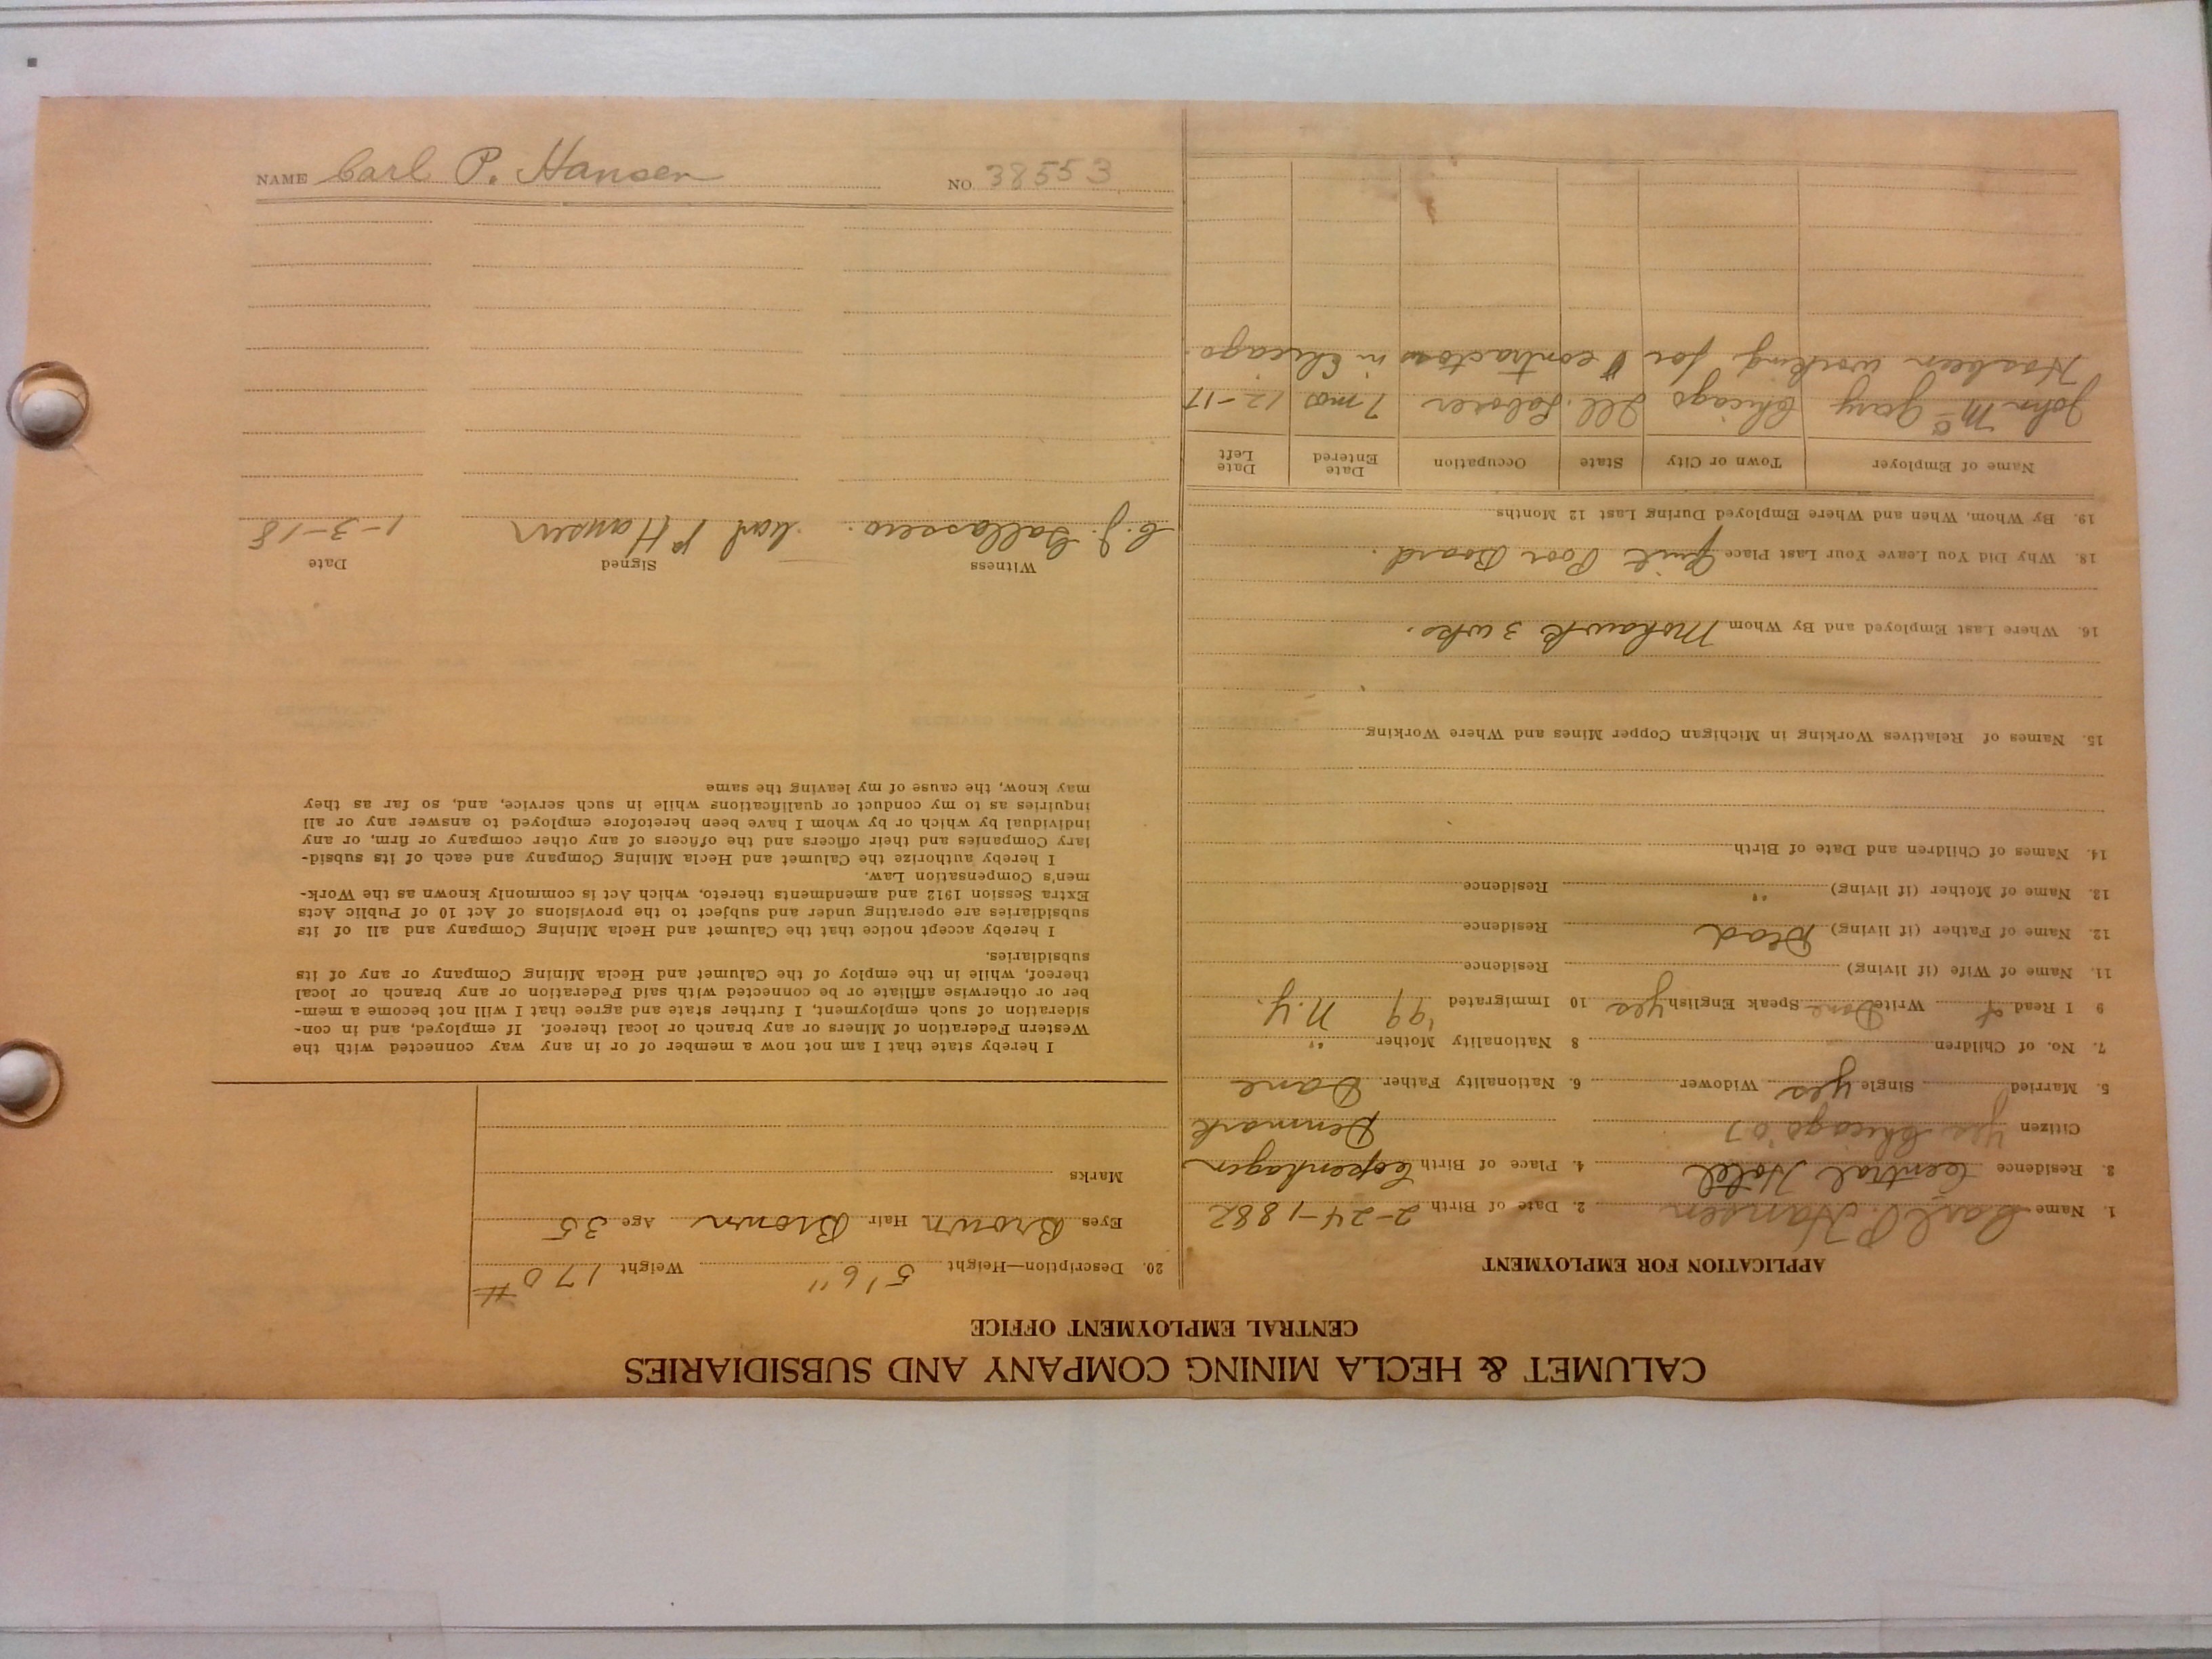 CALUMET & HECLA MINING COMPANY AND SUBSIDIARIES
CENTRAL EMPLOYMENT OFFICE
APPLICATION FOR EMPLOYMENT
1. Name Carl P. Hansen 2. Date of Birth 2-24-1882
3. Residence Central Hotel 4. Place of Birth Copenhagen
Citizen Yes Chicago '07 Denmark
5. Married Single yes Widower 6. Nationality Father Dane
7. No. of Children 8 Nationality Mother "
9 I Read & Write Dane Speak English yes 10 Immigrated '99 N.Y.
11. Name of Wife (if living) Residence
12. Name of Father (if living) Dead Residence
13. Name of Mother (if living) " Residence
14. Names of Children and Date of Birth
15. Names of Relatives Working in Michigan Copper Mines and Where Working
16. Where Last Employed and By Whom Mohawk 3 wks.
18. Why Did You Leave Your Last Place Quit Poor Board.
19. By Whom, When and Where Employed During Last 12 Months
Name of Employer Town or City State Occupation Date Entered Date Left
John Mc Gary Chicago Ill. Laborer 7 mos 12-17
Has been working for contractors in Chicago.
20. Description—Height 5'6" Weight 170 #
Eyes Brown Hair Brown Age 35
Marks
I hereby state that I am not now a member of or in any way connected with the
Western Federation of Miners or any branch or local thereof. If employed, and in con-
sideration of such employment, I further state and agree that I will not become a mem-
ber or otherwise affiliate or be connected with said Federation or any branch or local
thereof, while in the employ of the Calumet and Hecla Mining Company or any of its
subsidiaries.
I hereby accept notice that the Calumet and Hecla Mining Company and all of its
subsidiaries are operating under and subject to the provisions of Act 10 of Public Acts
Extra Session 1912 and amendments thereto, which Act is commonly known as the Work-
men's Compensation Law.
I hereby authorize the Calumet and Hecla Mining Company and each of its subsid-
iary Companies and their officers and the officers of any other company or firm, or any
individual by which or by whom I have been heretofore employed to answer any or all
inquiries as to my conduct or qualifications while in such service, and, so far as they
may know, the cause of my leaving the same
Witness Signed Date
C. J. Carl P Hansen 1-3-18
NAME Carl P. Hansen NO 38553